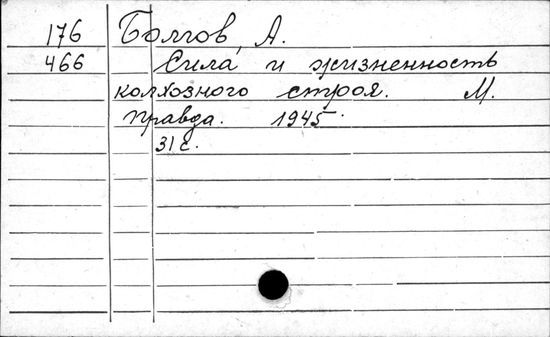 176 Болгов, А.
466 Сила и жизненность
колхозного строя. М.
Правда. 1945.
31 с.